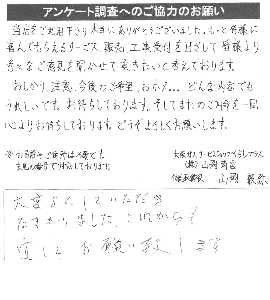 アンケート調査へのご協力のお願い
当店をご利用下さり大きにありがとうございました。もっと皆様に
喜んでもらえるサービス 販売 工事受付を目ざして 皆様より
色々なご意見を聞かせて戴きたいと考えております。
おしかり、注意、今後のご希望、おホメ... どんな内容でも
うれしいです。お待ちしております。そしてまたのご利用を一同
心よりお待ちしております。どうぞよろしくお願いします。
※お名前やご住所は不要です
大阪ガスサービスショップ
(株)山岡
山岡
大変よくしていただき
たすかりました。これからも
宜しくお願い致します